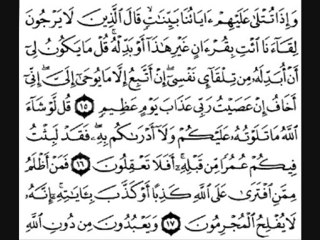 وَإِذَا تُتْلَىٰ عَلَيْهِمْ ءَايَاتُنَا بَيِّنَٰتٍ قَالَ ٱلَّذِينَ لَا يَرْجُونَ
لِقَآءَنَا ٱئْتِ بِقُرْءَانٍ غَيْرِ هَٰذَآ أَوْ بَدِّلْهُ قُلْ مَا يَكُونُ لِىٓ
أَنْ أُبَدِّلَهُۥ مِن تِلْقَآئِ نَفْسِىٓ إِنْ أَتَّبِعُ إِلَّا مَا يُوحَىٰٓ إِلَىَّ إِنِّىٓ
أَخَافُ إِنْ عَصَيْتُ رَبِّى عَذَابَ يَوْمٍ عَظِيمٍ ١٥ قُل لَّوْ شَآءَ
ٱللَّهُ مَا تَلَوْتُهُۥ عَلَيْكُمْ وَلَآ أَدْرَىٰكُم بِهِۦ فَقَدْ لَبِثْتُ
فِيكُمْ عُمُرًا مِّن قَبْلِهِۦٓ أَفَلَا تَعْقِلُونَ ١٦ فَمَنْ أَظْلَمُ
مِمَّنِ ٱفْتَرَىٰ عَلَى ٱللَّهِ كَذِبًا أَوْ كَذَّبَ بِـَٔايَٰتِهِۦٓ إِنَّهُۥ
لَا يُفْلِحُ ٱلْمُجْرِمُونَ ١٧ وَيَعْبُدُونَ مِن دُونِ ٱللَّهِ